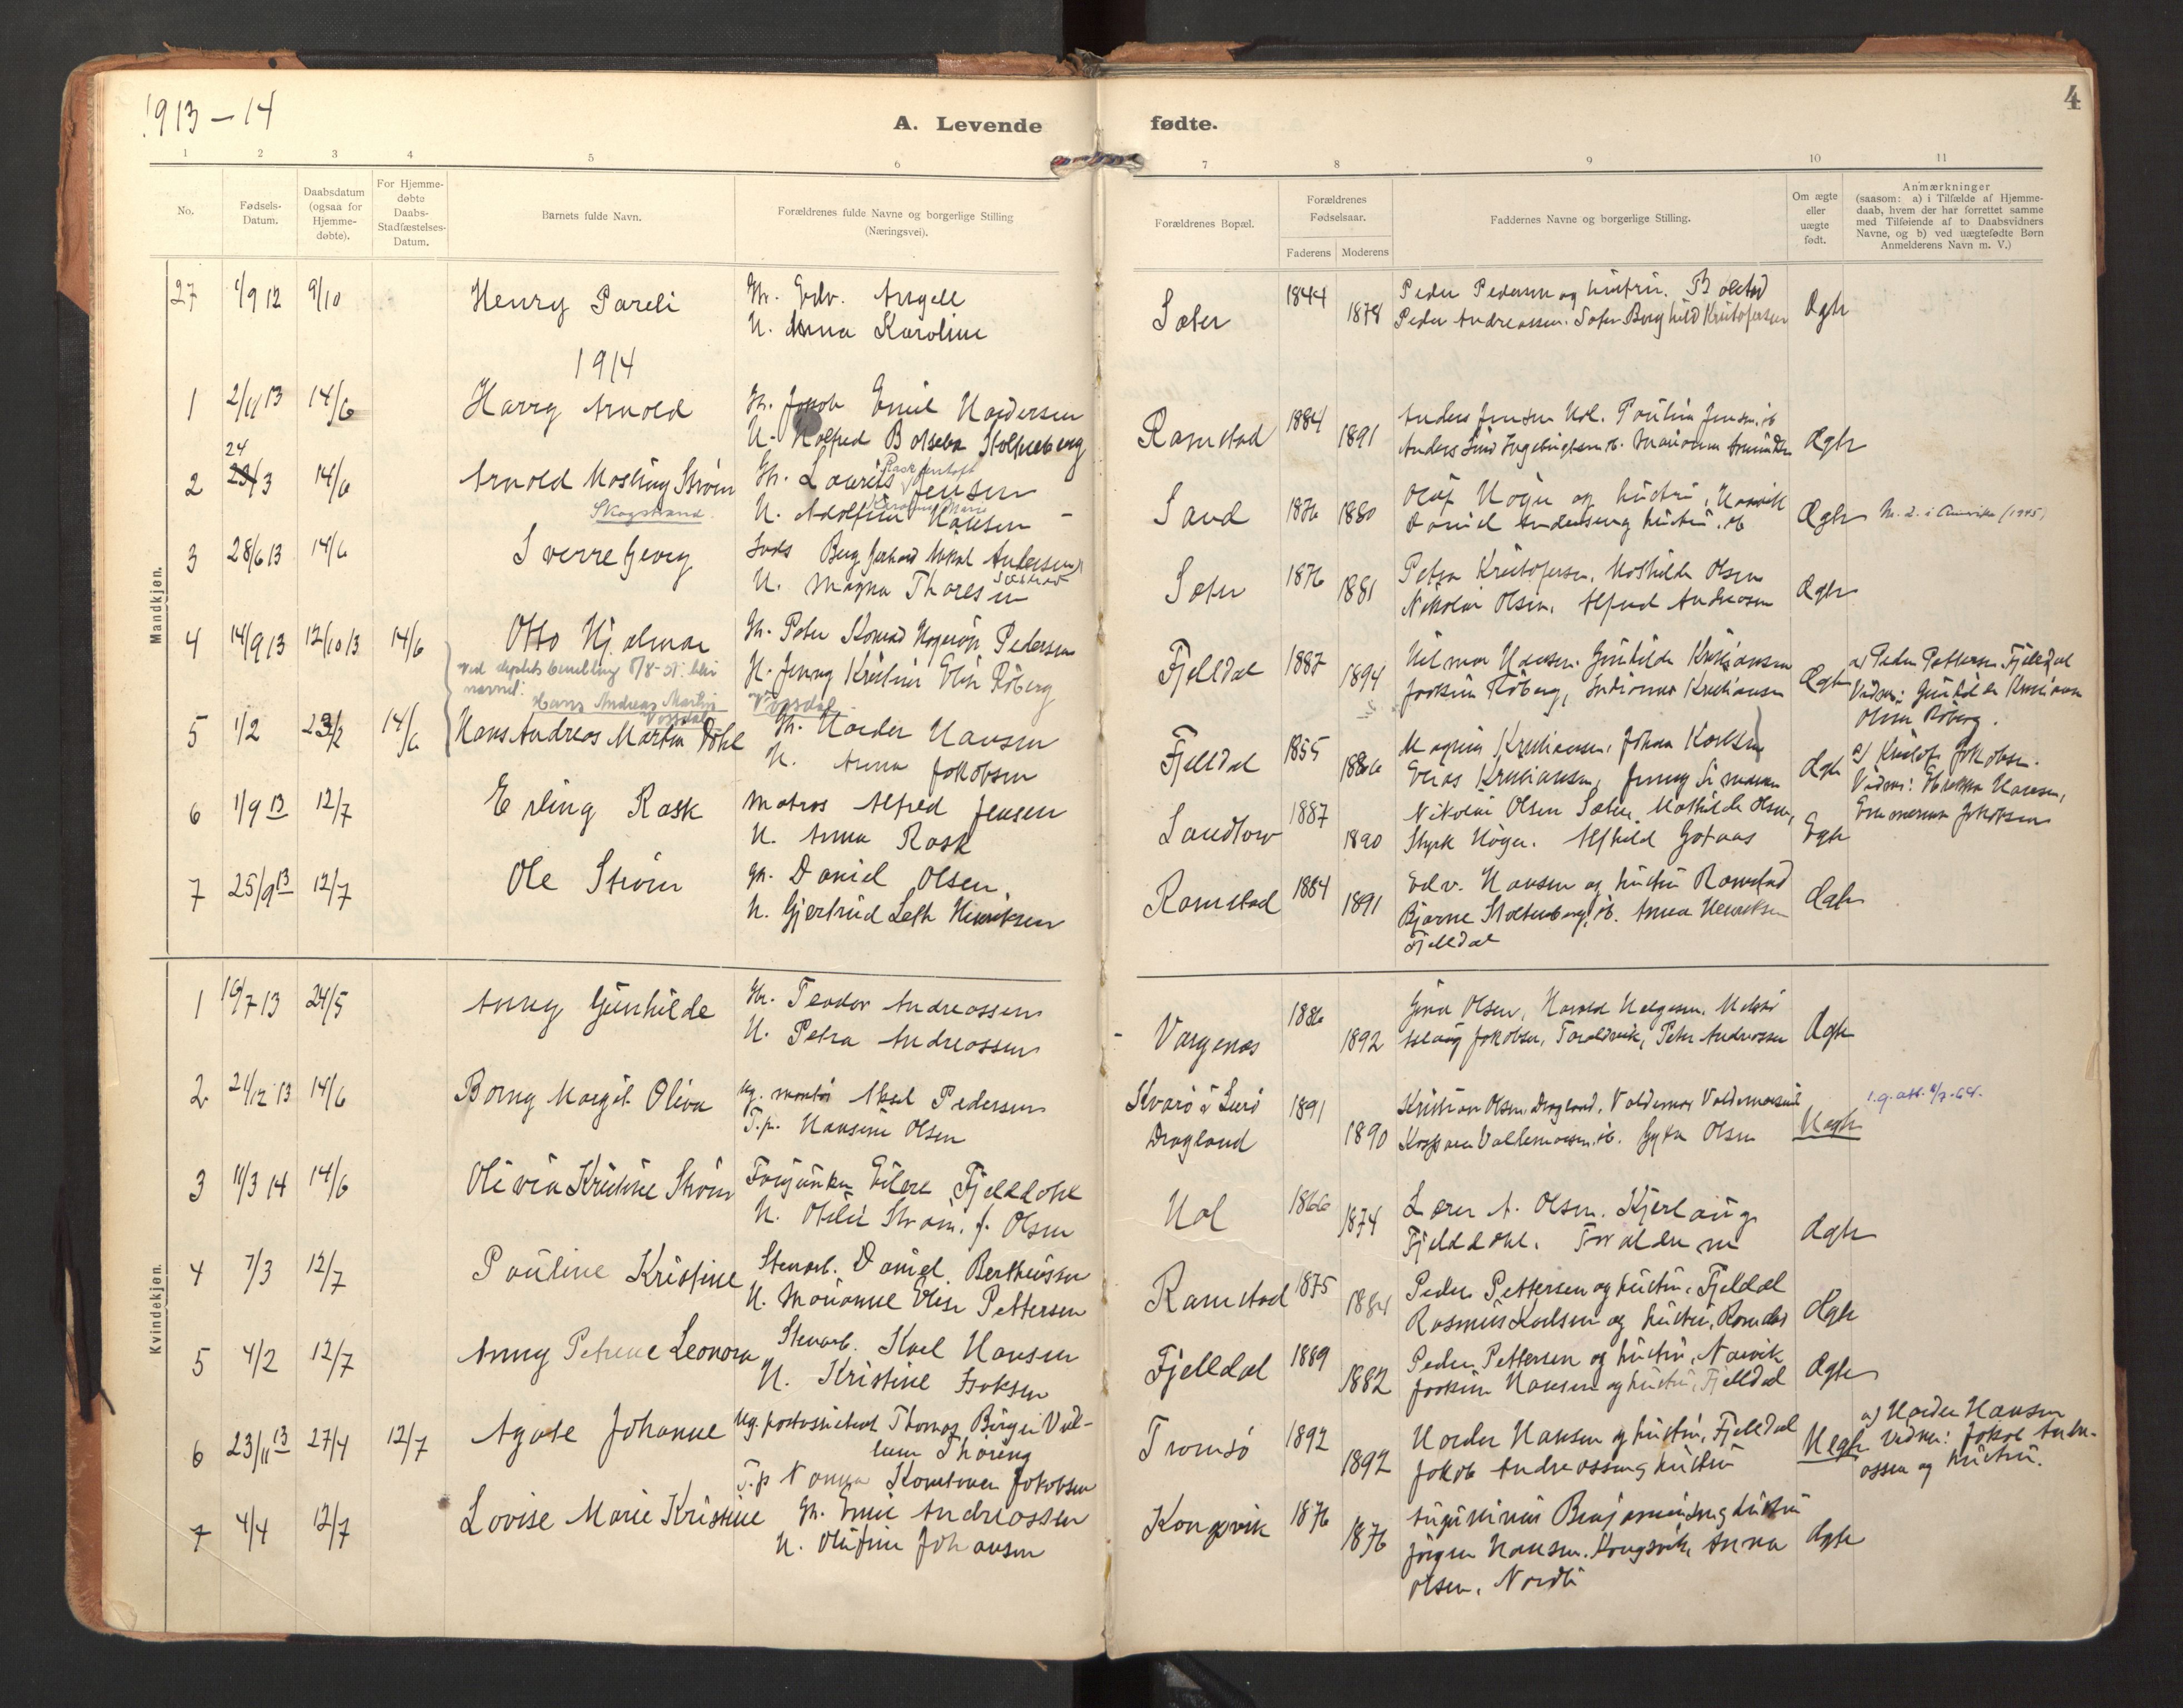 1913-14
4
A. Levende fødte.
1 2 3 4 5 6 7 8 9 10 11
No.
Fødsels-
Datum.
Daabsdatum
(ogsaa for
Hjemme-
døbte).
For Hjemme-
døbte
Daabs-
Stadfæstelses-
Datum.
Barnets fulde Navn.
Forældrenes fulde Navne og borgerlige Stilling
(Næringsvei).
Forældrenes Bopæl.
Forældrenes
Fødselsaar.
Faderens Moderens
Faddernes Navne og borgerlige Stilling.
Om ægte
eller
uægte
født.
Anmærkninger
(saasom: a) i Tilfælde af Hjemme-
daab, hvem der har forrettet samme
med Tilføiende af to Daabsvidners
Navne, og b) ved uægtefødte Børn
Anmelderens Navn m. V.)
Mandkjøn.
27 1/9 12 9/10 Henry Pareli Gr. Edv. Angell
H. Anna Karoline
Sæter 1844 1878 Peder Pedersen og hustru. Bolstad
Peder Andreassen. Sæter Borghild Kristofersen
Ægte
1914
1 2/11 13 14/6 Harry Arnold Gr. Jakob Emil Hardersen
H. Stoltenberg
Ramstad 1884 1891 Anders Jensen Hol. Paulina Jensen. ib
Anders Ingebrigtsen ib.
Ægte
2 24 23/3 14/6 Arnold Strøm
Skogstrand.
Gr. Laurits Jensen
H. Adolfine Hansen
Sand 1876 1880 Olaf Høgu og hustru,
Daniel Andersen og hustru. ib
Ægte i Amerika (1945)
3 28/6 13 14/6 Sverre Georg Andersen
H. Magna Thoresen
Sæter 1876 1881 Petra Kristofersen, Mathilde Olsen
Nikolai Olsen, Alfred Andreasen
Ægte
4 14/9 13 12/10 13 14/6 Otto Hjalmar
Gr. Peter Konrad Pedersen
H. Jenny Kristine Elise Röberg
Fjelldal 1887 1894 Hilmar Hansen. Gunhilda Kristiansen
Joakim Röberg, Kristiansen
Ægte a) Peder Pettersen Fjelldal
Vidner: Gunhilda Kristiansen
Olina Röberg.
ved deptets bevilling 8/8-51 blir
navnet:
Hans Andreas Martin
Vossdal
5 1/2 23/2 14/6 Hans Andreas Martin Dahl
Gr. Harder Hansen
H. Anna Jakobsen
Fjelldal 1855 1886 Magnus Kristiansen, Johan Karlsen
Kristiansen, Jenny
Ægte a) Kristofer Jakobsen.
Vidner: Hansen,
Jakobsen
6 1/9 13 12/7 Erling Rask Matros Alfred Jensen
H. Anna Rask
Sandtorv 1887 1890 Nikolai Olsen Sæter, Mathilde Olsen,
Styrk Høgu. Alfhild Gotaas
Egte
7 25/9 13 12/7 Ole Strøm Gr. Daniel Olsen.
H. Gjertrud Leth Henriksen
Ramstad 1884 1891 Edv. Hansen og hustru Ramstad
Bjarne Stoltenberg, ib. Anna Henriksen
Fjelldal
Ægte
Kvindekjøn.
1 16/7 13 24/5 Anny Gunhilde Gr. Teodor Andreassen
H. Petra Andreassen
Vargenes 1886 1892 Gina Olsen, Harald Helgesen.
Aslaug Jakobsen, Taraldsvik, Peter Andreassen
Ægte
2 21/12 13 14/6 Borny Margit Oliva Ug. montør Aksel Pedersen
T.p. Hansine Olsen
Kvarö i Lurö
Dragland
1891 1890 Kristian Olsen Dragland, Valdemar Valdemarsen
Kaspara Valdemarsen. ib. Gyda Olsen
Uægte
3 11/3 14 14/6 Olivia Kristine Strøm Forjunker Eilert Fjelldahl
H. Otelie Strøm. f. Olsen
Hol 1866 1874 Lærer A. Olsen. Kjerlaug
Fjelldahl. Forældrene
Ægte
4 7/3 12/7 Pauline Kristine Stenarb. Daniel Bertheussen
H. Marianne Elise Pettersen
Ramstad 1875 1884 Peder Pettersen og hustru, Fjeldal
Rasmus Karlsen og hustru, Ramstad
Ægte
5 4/2 12/7 Anny Petrene Leonora Stenarb. Karl Hansen
H. Kristine Isaksen
Fjelldal 1889 1882 Peder Pettersen og hustru, Narvik
Joakim Hansen og hustru, Fjelldal
Ægte
6 23/11 13 27/4 12/7 Agate Johanne Ug. postassistent Thomas Birger Vil-
helm Thoring
T.p Nanna Konstanse Jakobsen
Tromsö 1892 1892 Harder Hansen og hustru, Fjelldal
Jakob Andreassen og hustru
Uegte a) Harder Hansen
Vidner: Jakob Andre-
assen og hustru.
7 4/4 12/7 Lovise Marie Kristine Gr. Emil Andreassen
H. Olufine Johansen
Kongsvik 1876 1876 Benjaminsen og hustru
Jörgen Hansen. Kongsvik Anna
Olsen, Nordli
Ægte